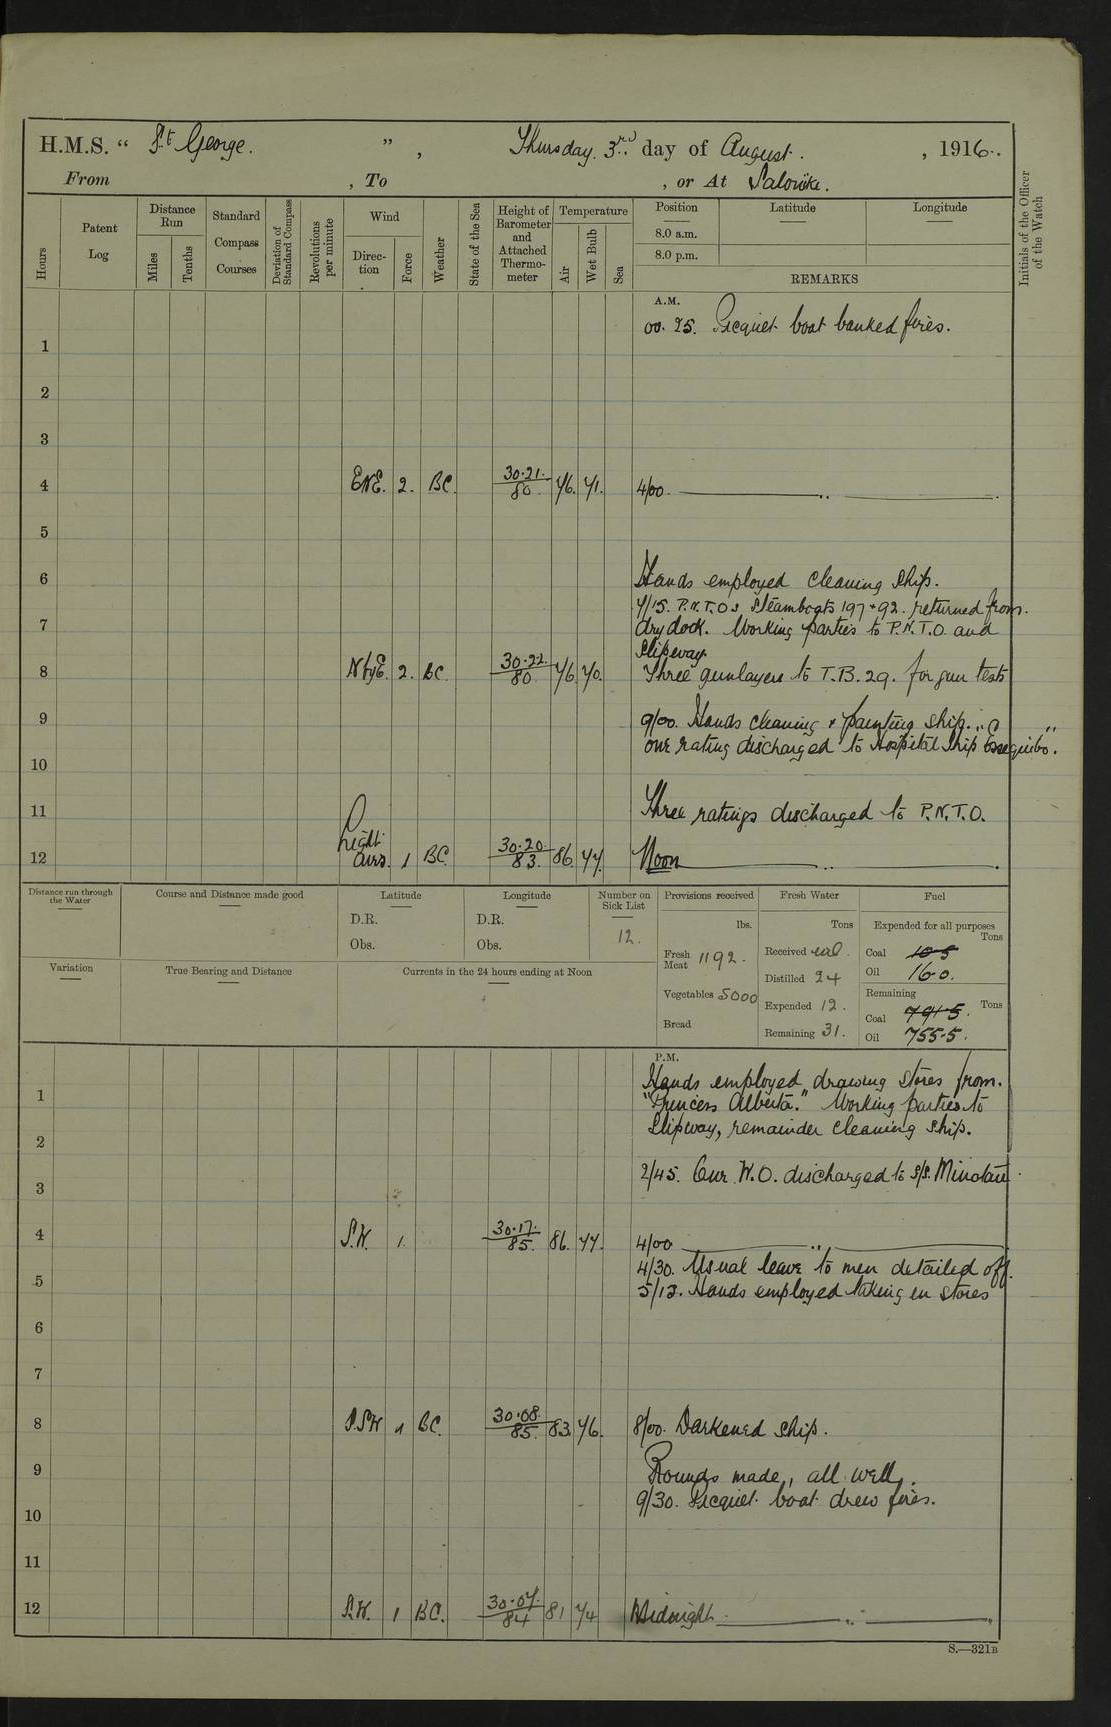 H.M.S. " St George. ", Thursday. 3rd. day of August. , 1916.
From , To , or At Salonika.
Hours
Patent Log
Distance Run
Miles
Tenths
Standard Compass Courses
Deviation of Standard Compass
Revolutions per minute
Wind
Direction
Force
Weather
State of the Sea
Height of Barometer and Attached Thermometer
Temperature
Air
Wet Bulb
Sea
Position
Latitude
Longitude
8.0 a.m.
8.0 p.m.
REMARKS
Initials of the Officer of the Watch
A.M.
00.25. Picquet boat banked fires.
1
2
3
4 ENE. 2. BC. 30.21. 80. 76. 71. 4/00.
5
6 Hands employed cleaning ship.
7/15. P.N.T.Os Steamboats 197 + 92. returned from.
7 dry dock. Working parties to P.N.T.O. and
Slipway.
8 NbyE. 2. BC. 30.22. 80. 76. 70. Three gunlayers to T.B. 29. for gun tests
9 9/00. Hands cleaning & painting ship.
one rating discharged to Hospital Ship "Essequibo".
10
11 Three ratings discharged to P.N.T.O.
12 Light airs. 1 BC. 30.20 83. 86. 77. Noon
Distance run through the Water
Course and Distance made good
Latitude
D.R.
Obs.
Longitude
D.R.
Obs.
Number on Sick List
12.
Provisions received
lbs.
Fresh Meat 1192.
Vegetables 5000
Bread
Fresh Water
Tons
Received
Distilled 24
Expended 12.
Remaining 31.
Fuel
Expended for all purposes
Tons
Coal 10.5
Oil 16.0.
Remaining
Tons
Coal 791.5.
Oil 755.5.
Variation
True Bearing and Distance
Currents in the 24 hours ending at Noon
P.M.
Hands employed drawing stores from.
1 "Princess Alberta." Working parties to
Slipway, remainder cleaning ship.
2
2/45. One W.O. discharged to S/S. Minotau
3
4 S.W. 1. 30.17. 85. 86. 77. 4/00
4/30. Usual leave to men detailed off.
5 5/12. Hands employed taking in stores
6
7
8 S.SW 1 BC. 30.08. 85. 83. 76. 8/00. Darkened ship.
9 Rounds made, all well.
9/30. Picquet boat drew fires.
10
11
12 S.W. 1 BC. 30.07. 84 81 74 Midnight
S.—321B